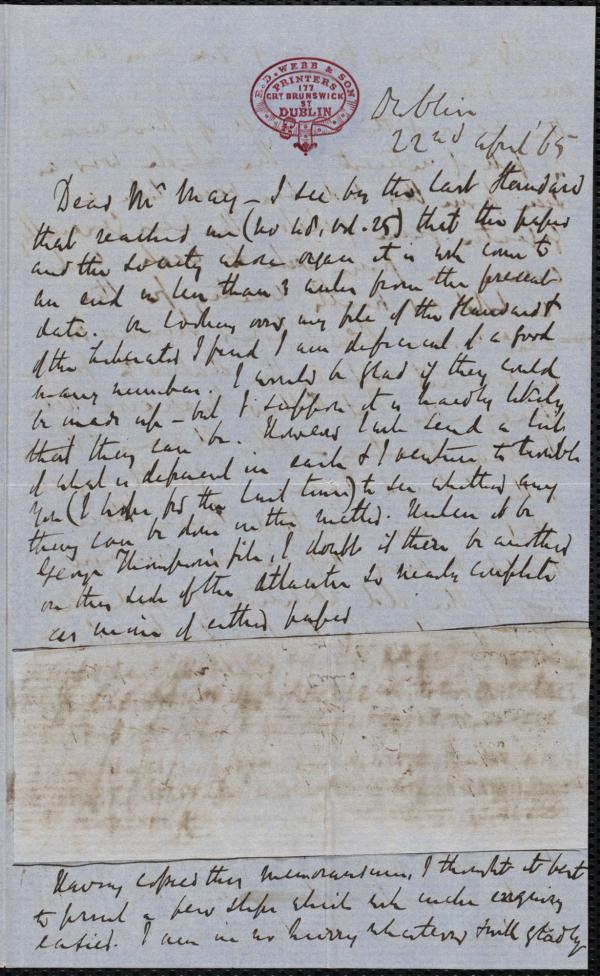 R.D. WEBB & SON
PRINTERS
177
GRT BRUNSWICK
ST
DUBLIN
Dublin
22nd April '65
Dear Mr May - I see by the last Standard
that reached me (no 48, vol. 25) that the paper
and the Society whose organ it is will come to
an end in less than 3 weeks from the present
date. On looking over my file of the Standard &
of the Liberator I find I am deficient of a good
many numbers. I would be glad if they could
be made up - but I suppose it is hardly likely
that they can be. However I will send a list
of what is deficient in each & I venture to trouble
you (I hope for the last time) to see whether any
thing can be done in the matter. Unless it be
George Thompson's file, I doubt if there be another
on this side of the Atlantic so nearly complete
as mine of either paper
Having copied this memorandum, I thought it best
to print a few slips which will make enquiry
easier. I am in no hurry whatever & will gladly